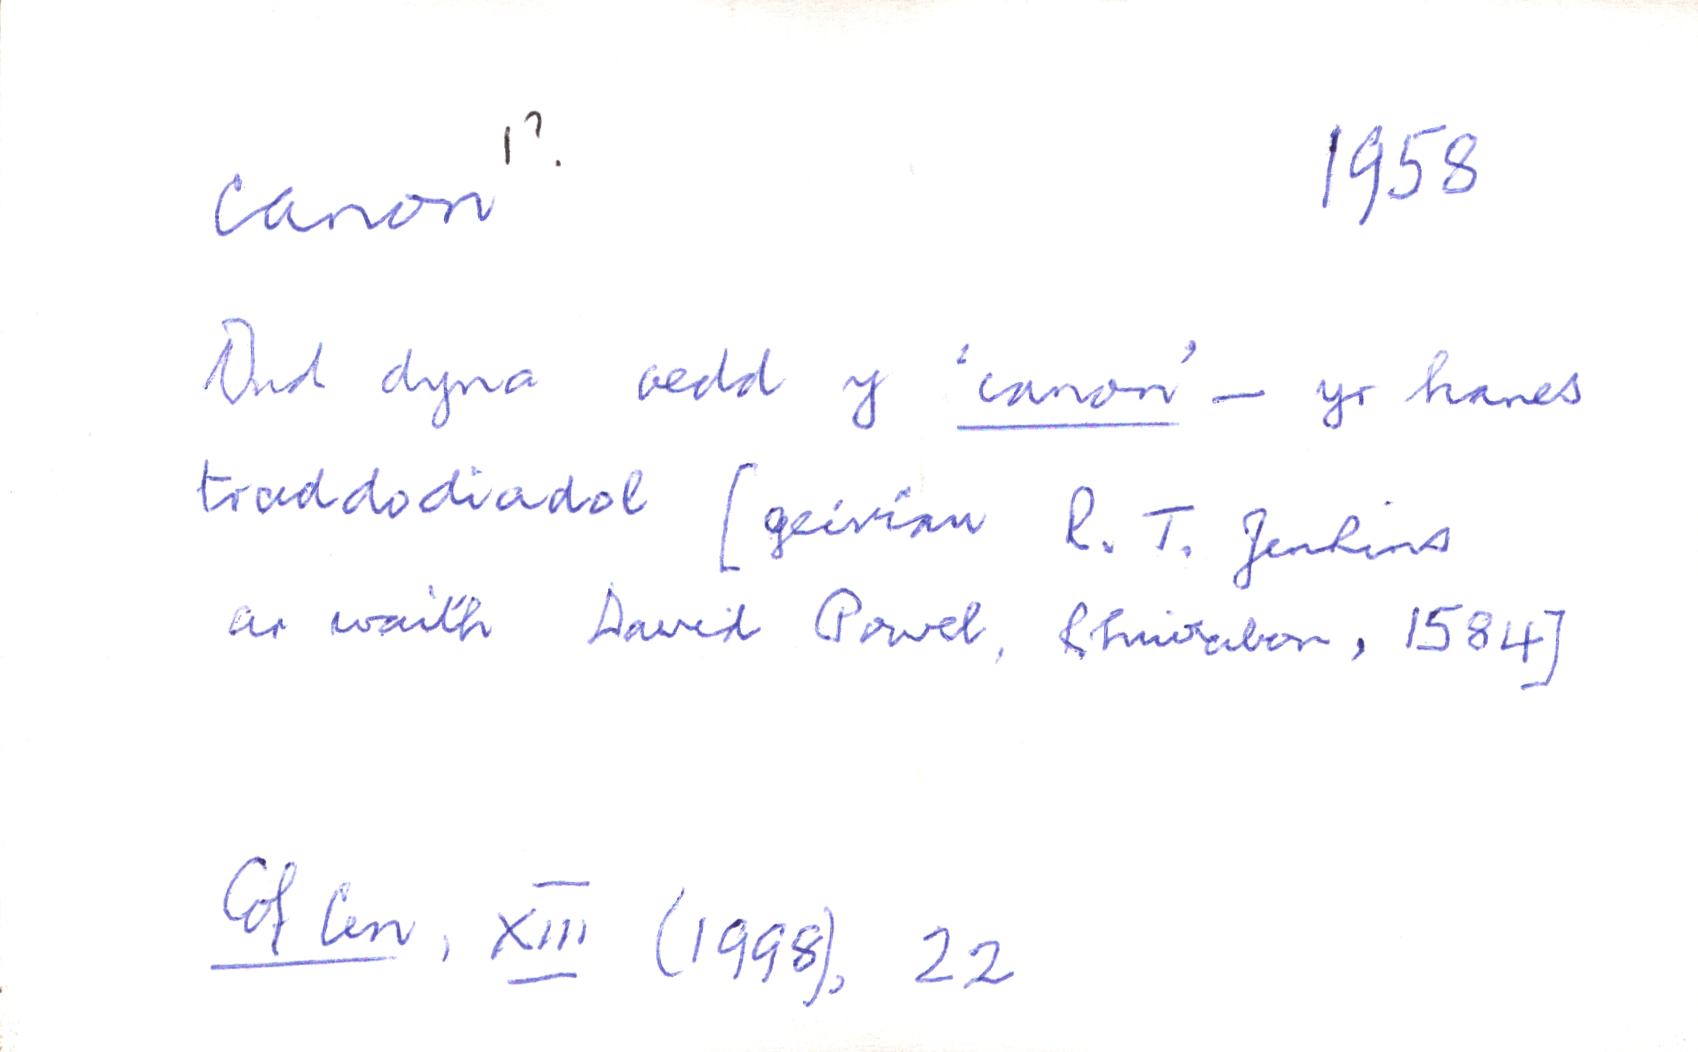 canon 1?. 1958
Ond dyna oedd y 'canon' – yr hanes
traddodiadol [geiriau R. T. Jenkins
ar waith David Powel, Rhiwabon, 1584]
Cof Cen, XIII (1998), 22